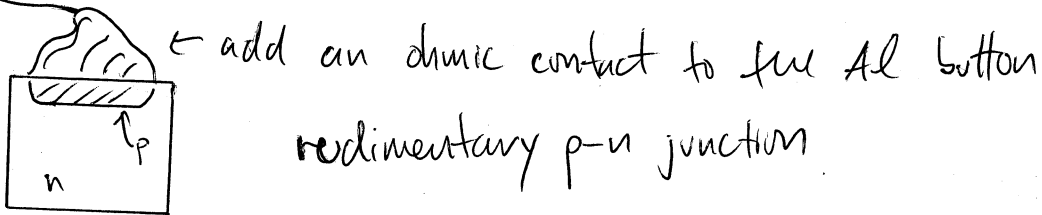 ← add an ohmic contact to the Al button
rudimentary p-n junction.
p
n